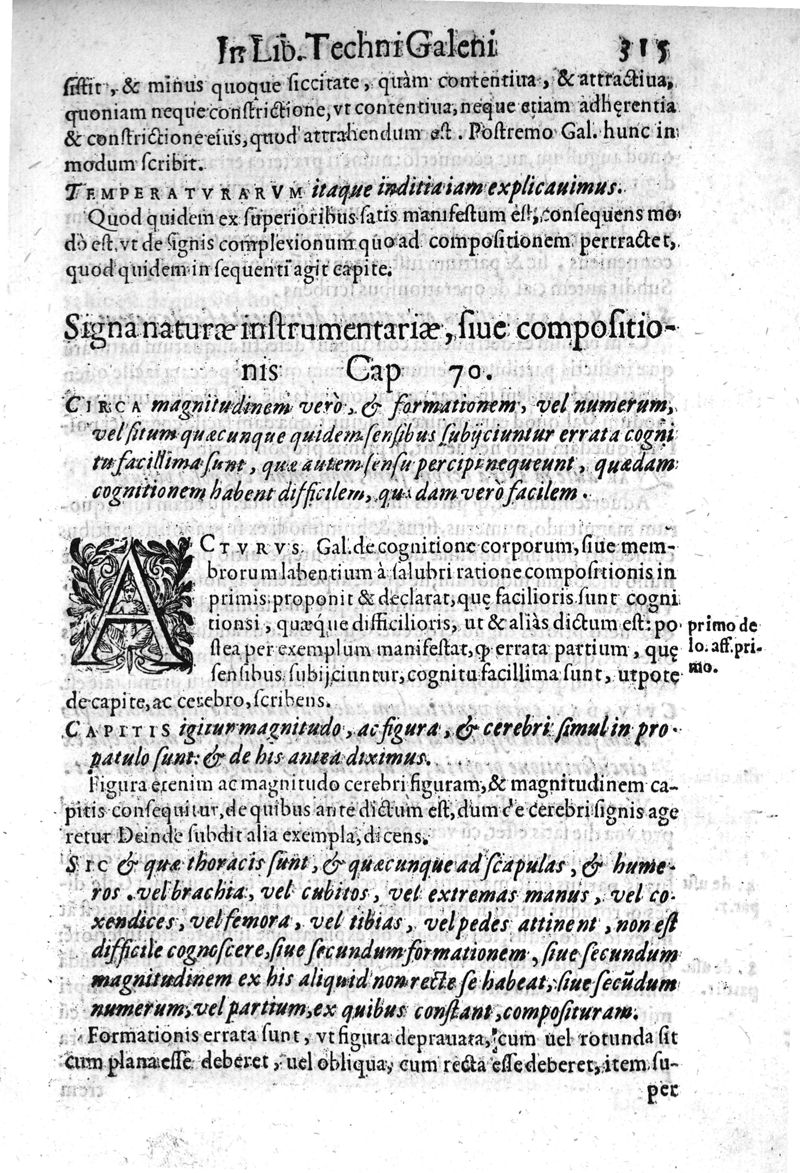 In Lib. Techni Galeni 315
sistit, & minus quoque siccitate, quàm contentiua, & attractiua,
quoniam neque constrictione, vt contentiua, neque etiam adhęrentia
& constrictione eius, quod attrahendum est. Postremo Gal. hunc in
modum scribit.
TEMPERATVRARVM itaque inditia iam explicauimus.
Quod quidem ex superioribus satis manifestum est, consequens mo
do est, vt de signis complexionum quo ad compositionem pertractet,
quod quidem in sequenti agit capite.
Signa naturæ instrumentariæ, siue compositio-
nis Cap 70.
CIRCA magnitudinem verò, & formationem, vel numerum,
vel situm quæcunque quidem sensibus subijciuntur errata cogni
tu facillima sunt, quæ autem sensu percipi nequeunt, quædam
cognitionem habent difficilem, quædam verò facilem.
ACTVRVS Gal. de cognitione corporum, siue mem-
brorum labentium à salubri ratione compositionis in
primis proponit & declarat, quę facilioris sunt cogni
tionsi, quæque difficilioris, ut & aliàs dictum est: po
stea per exemplum manifestat, ꝙ errata partium, quę
sensibus subijciuntur, cognitu facillima sunt, utpotę
de capite, ac cerebro, scribens.
primo de
lo. aff. pri-
mo.
CAPITIS igitur magnitudo, ac figura, & cerebri simul in pro-
patulo sunt: & de his antea diximus.
Figura etenim ac magnitudo cerebri figuram, & magnitudinem ca-
pitis consequitur, de quibus ante dictum est, dum de cerebri signis age
retur Deinde subdit alia exempla, dicens.
SIC & quæ thoracis sunt, & quæcunque ad scapulas, & hume-
ros. vel brachia, vel cubitos, vel extremas manus, vel co-
xendices, vel femora, vel tibias, vel pedes attinent, non est
difficile cognoscere, siue secundum formationem, siue secundum
magnitudinem ex his aliquid non recte se habeat, siue secũdum
numerum, vel partium, ex quibus constant, composituram.
Formationis errata sunt, vt figura deprauata, cum uel rotunda sit
cum plana esse deberet, uel obliqua, cum recta esse deberet, item su-
per